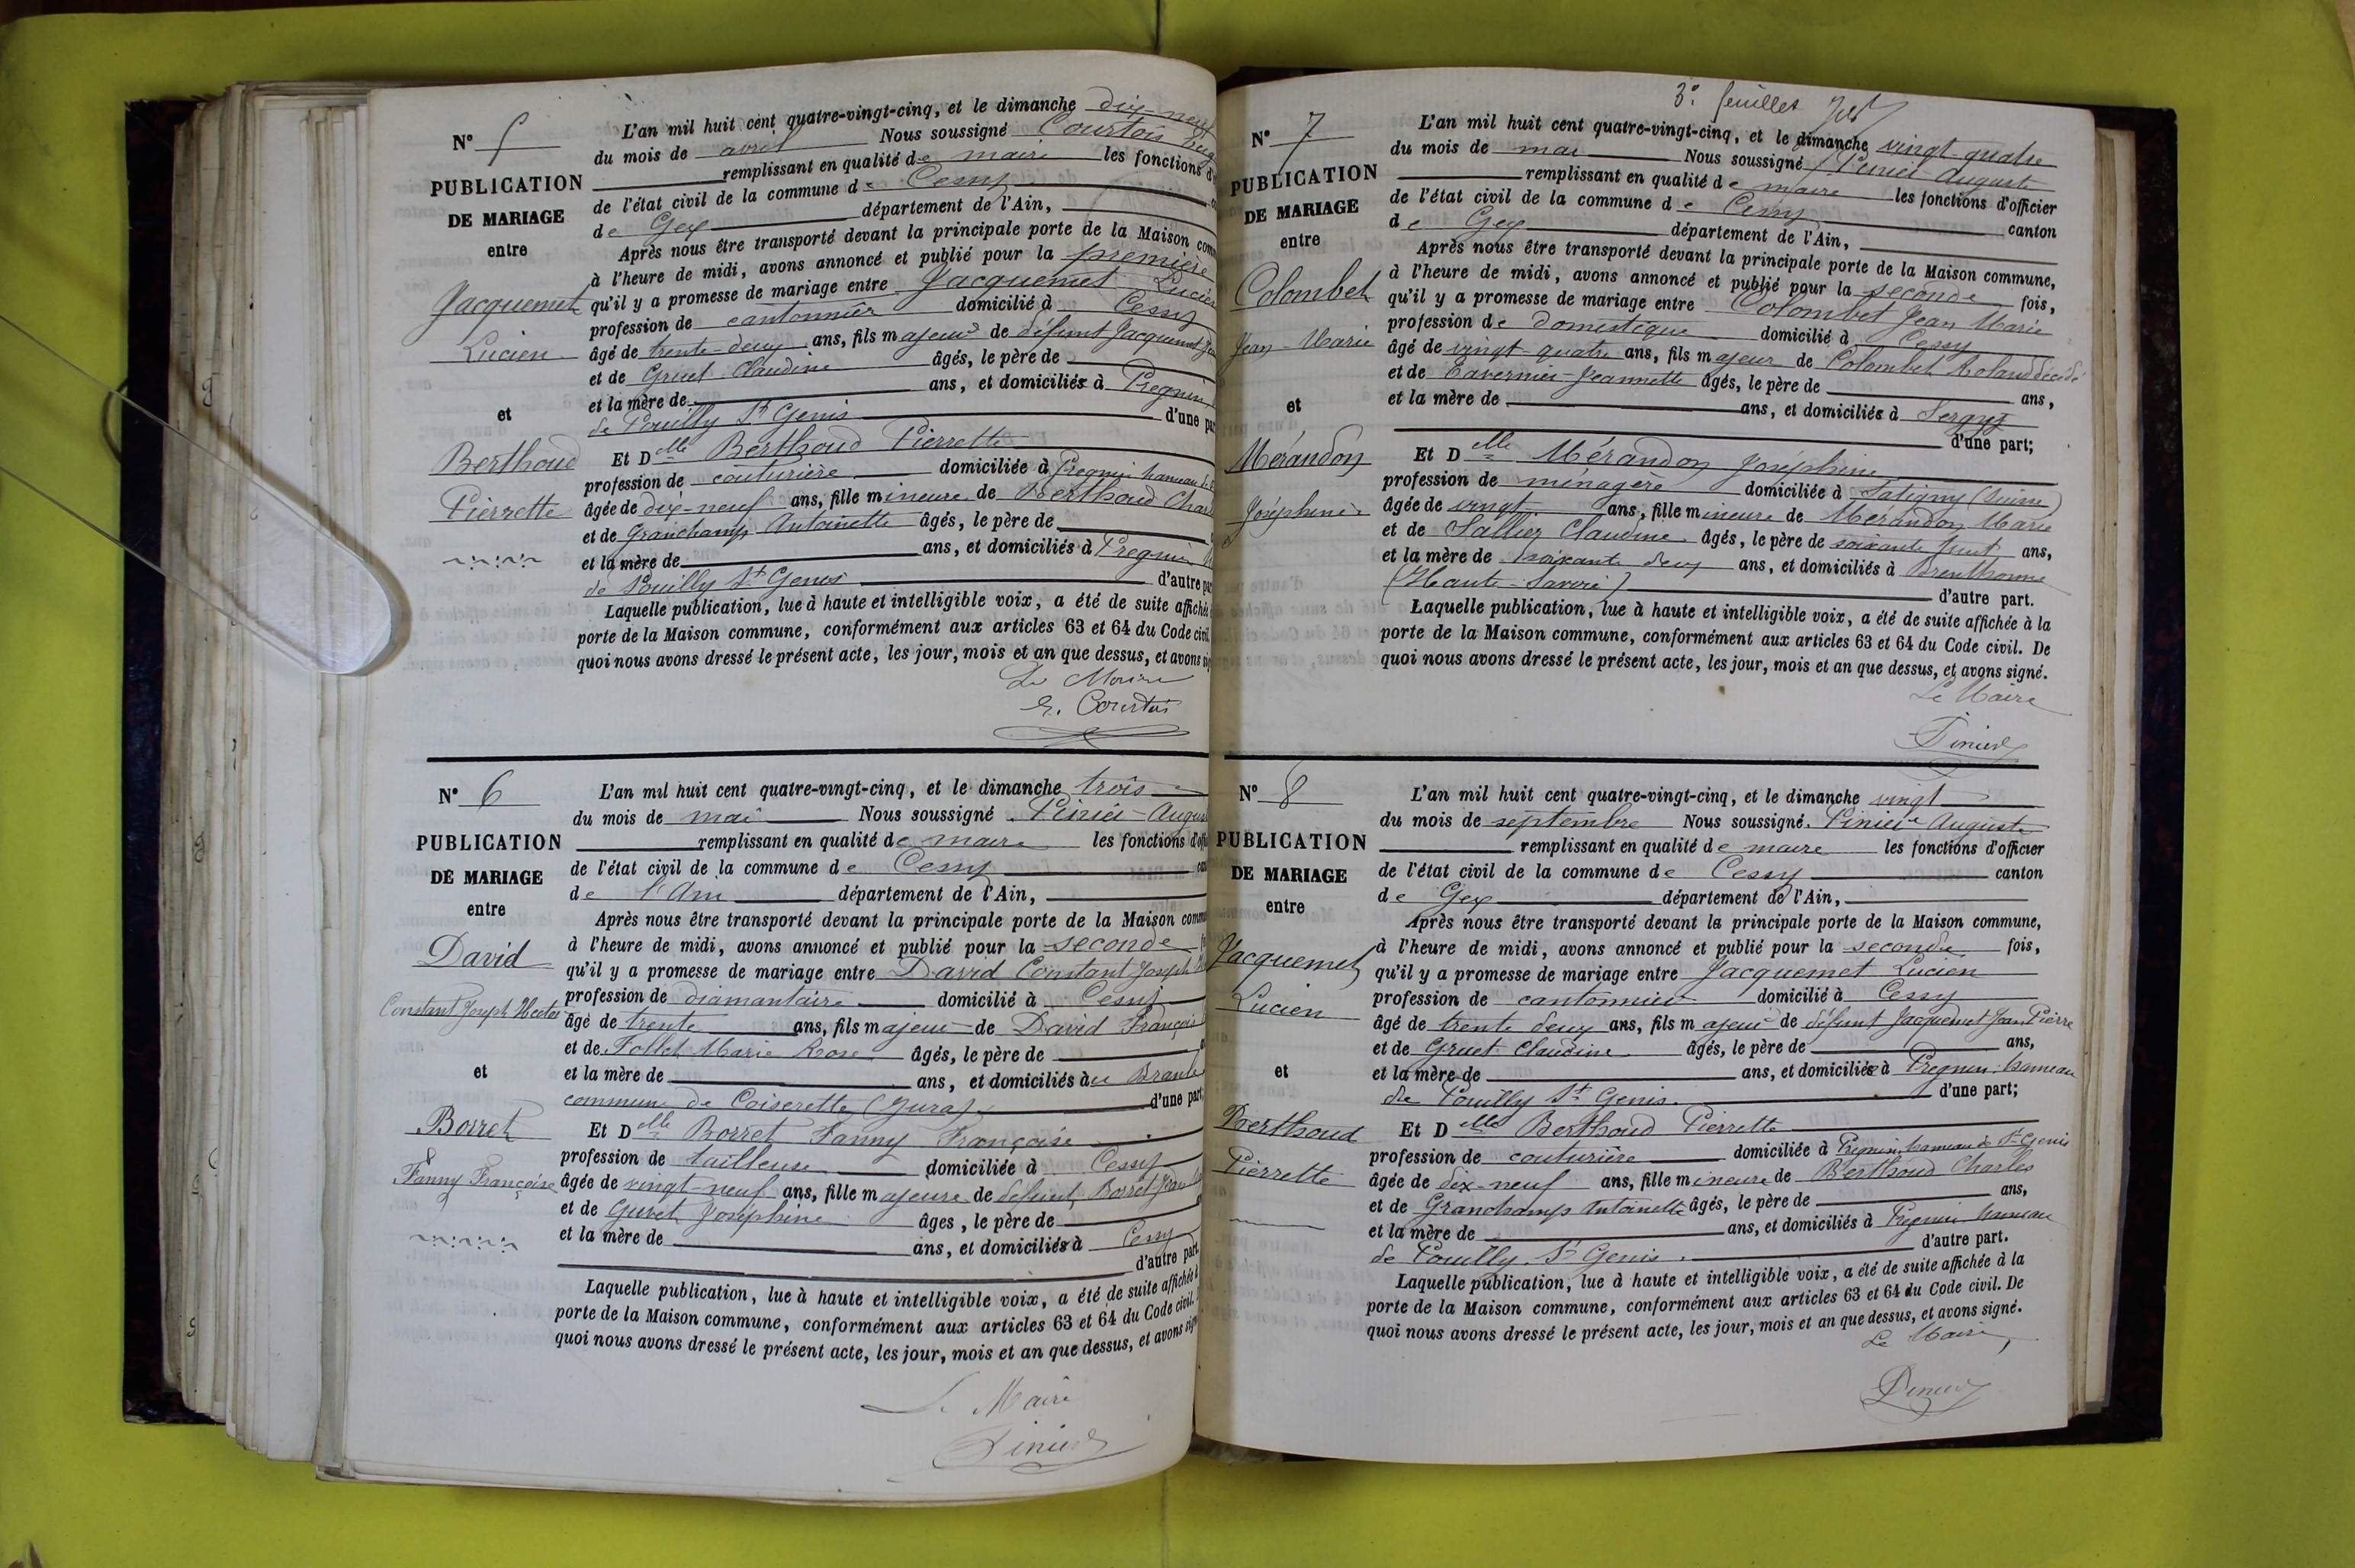 N° 5
PUBLICATION
DE MARIAGE
entre
Jacquemet
Lucien
et
Berthoud
Pierrette
L'an mil huit cent quatre-vingt-cinq, et le dimanche dix-neuf
du mois de avril Nous soussigné Courtois
remplissant en qualité de maire les fonctions d'
de l'état civil de la commune de Cessy
de Gex département de l'Ain,
Après nous être transporté devant la principale porte de la Maison com
à l'heure de midi, avons annoncé et publié pour la première
qu'il y a promesse de mariage entre Jacquemet Lucien
profession de cantonnier domicilié à Cessy
âgé de trente-deux ans, fils majeur de défunt Jacquemet
et de Gruet Claudine âgés, le père de
et la mère de ans, et domiciliés à Pregnin
de Pouilly St Genis d'une par
Et Delle Berthoud Pierrette
profession de couturière domiciliée à Pregnin hameau de
âgée de dix-neuf ans, fille mineure de Berthoud Char
et de Granchamp Antoinette âgés, le père de
et la mère de ans, et domiciliés à Pregnin
de Pouilly St Genis d'autre par
Laquelle publication, lue à haute et intelligible voix, a été de suite affichée
porte de la Maison commune, conformément aux articles 63 et 64 du Code civil.
quoi nous avons dressé le présent acte, les jour, mois et an que dessus, et avons sig
Le Maire
Courtois
N° 6
PUBLICATION
DE MARIAGE
entre
David
Constant Joseph Hector
et
Borret
Fanny Françoise
L'an mil huit cent quatre-vingt-cinq, et le dimanche trois
du mois de mai Nous soussigné Pinier Augus
remplissant en qualité de maire les fonctions d'offi
de l'état civil de la commune de Cessy can
de l'Ain département de l'Ain,
Après nous être transporté devant la principale porte de la Maison commu
à l'heure de midi, avons annoncé et publié pour la seconde
qu'il y a promesse de mariage entre David Constant Joseph
profession de diamantaire domicilié à Cessy
âgé de trente ans, fils majeur de David François
et de Follet Marie Rose âgés, le père de
et la mère de ans, et domiciliés à
commune de Coiserette (Jura) d'une part,
Et Delle Borret Fanny Françoise
profession de tailleuse domiciliée à Cessy
âgée de vingt-neuf ans, fille majeure de défunt Borret Jean
et de Guret Joséphine âges, le père de
et la mère de ans, et domiciliés à Cessy
d'autre part.
Laquelle publication, lue à haute et intelligible voix, a été de suite affichée à
porte de la Maison commune, conformément aux articles 63 et 64 du Code civil.
quoi nous avons dressé le présent acte, les jour, mois et an que dessus, et avons sign
Le Maire
Pinier
3e feuillet
N° 7
PUBLICATION
DE MARIAGE
entre
Colombet
Jean-Marie
et
Mérandon
Joséphine
L'an mil huit cent quatre-vingt-cinq, et le dimanche vingt-quatre
du mois de mai Nous soussigné Pinier Auguste
remplissant en qualité de maire les fonctions d'officier
de l'état civil de la commune de Cessy canton
de Gex département de l'Ain,
Après nous être transporté devant la principale porte de la Maison commune,
à l'heure de midi, avons annoncé et publié pour la seconde fois,
qu'il y a promesse de mariage entre Colombet Jean Marie
profession de domestique domicilié à Cessy
âgé de vingt-quatre ans, fils majeur de Colombet Roland décédé
et de Tavernier Jeannette âgés, le père de ans,
et la mère de ans, et domiciliés à Sergy
d'une part;
Et Delle Mérandon Joséphine
profession de ménagère domiciliée à Satigny (Suisse)
âgée de vingt ans, fille mineure de Mérandon Marie
et de Sallier Claudine âgés, le père de soixante huit ans,
et la mère de soixante deux ans, et domiciliés à Brenthonne
(Haute-Savoie) d'autre part.
Laquelle publication, lue à haute et intelligible voix, a été de suite affichée à la
porte de la Maison commune, conformément aux articles 63 et 64 du Code civil. De
quoi nous avons dressé le présent acte, les jour, mois et an que dessus, et avons signé.
Le Maire
Pinier
N° 8
PUBLICATION
DE MARIAGE
entre
Jacquemet
Lucien
et
Berthoud
Pierrette
L'an mil huit cent quatre-vingt-cinq, et le dimanche vingt
du mois de septembre Nous soussigné Pinier Auguste
remplissant en qualité de maire les fonctions d'officier
de l'état civil de la commune de Cessy canton
de Gex département de l'Ain,
Après nous être transporté devant la principale porte de la Maison commune,
à l'heure de midi, avons annoncé et publié pour la seconde fois,
qu'il y a promesse de mariage entre Jacquemet Lucien
profession de cantonnier domicilié à Cessy
âgé de trente deux ans, fils majeur de défunt Jacquemet Jean Pierre
et de Gruet Claudine âgés, le père de ans,
et la mère de ans, et domiciliés à Pregnin hameau
de Pouilly St Genis. d'une part;
Et Delle Berthoud Pierrette
profession de couturière domiciliée à Pregnin hameau de St Genis
âgée de dix-neuf ans, fille mineure de Berthoud Charles
et de Granchamp Antoinette âgés, le père de ans,
et la mère de ans, et domiciliés à Pregnin hameau
de Pouilly St Genis. d'autre part.
Laquelle publication, lue à haute et intelligible voix, a été de suite affichée à la
porte de la Maison commune, conformément aux articles 63 et 64 du Code civil. De
quoi nous avons dressé le présent acte, les jour, mois et an que dessus, et avons signé.
Le Maire,
Pinier